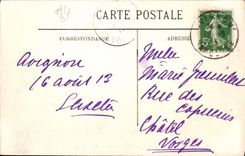 CARTE POSTALE
CORRESPONDANCE
ADRESSE
Avignon
16 août 13
Mlle
Marie
Rue des Capucins
Châtel
Vosges